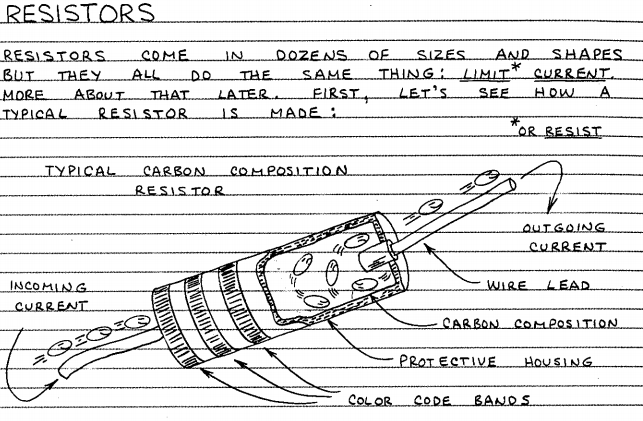 RESISTORS
RESISTORS COME IN DOZENS OF SIZES AND SHAPES
BUT THEY ALL DO THE SAME THING: LIMIT* CURRENT.
MORE ABOUT THAT LATER. FIRST, LET'S SEE HOW A
TYPICAL RESISTOR IS MADE:
*OR RESIST
TYPICAL CARBON COMPOSITION
RESISTOR
OUTGOING
CURRENT
INCOMING
CURRENT
WIRE LEAD
CARBON COMPOSITION
PROTECTIVE HOUSING
COLOR CODE BANDS